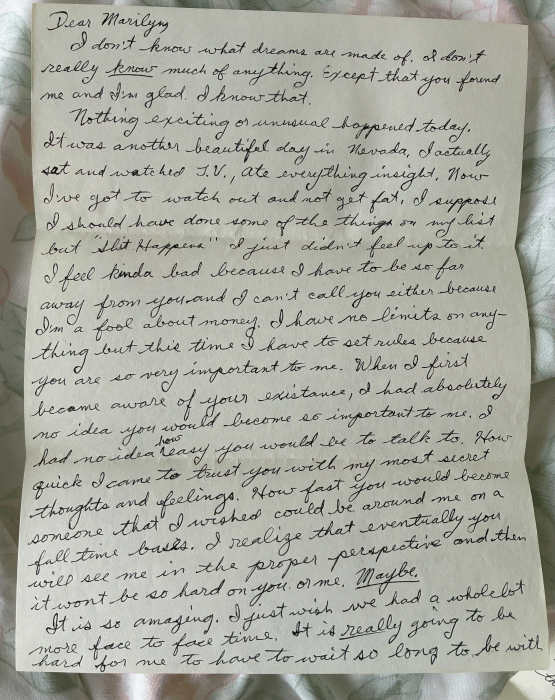 Dear Marilyn
I don't know what dreams are made of. I don't
really know much of anything. Except that you found
me and I'm glad. I know that.
Nothing exciting or unusual happened today.
It was another beautiful day in Nevada, I actually
sat and watched T.V., ate everything insight. Now
I've got to watch out and not get fat, I suppose
I should have done some of the things on my list
but "Shit Happens" I just didn't feel up to it.
I feel kinda bad because I have to be so far
away from you and I can't call you either because
I'm a fool about money. I have no limits on any-
thing but this time I have to set rules because
you are so very important to me. When I first
became aware of your existance, I had absolutely
no idea you would become so important to me. I
had no idea how easy you would be to talk to. How
quick I came to trust you with my most secret
thoughts and feelings. How fast you would become
someone that I wished could be around me on a
full time basis. I realize that eventually you
will see me in the proper perspective and then
it wont be so hard on you or me. Maybe.
It is so amazing. I just wish we had a whole lot
more face to face time. It is really going to be
hard for me to have to wait so long to be with